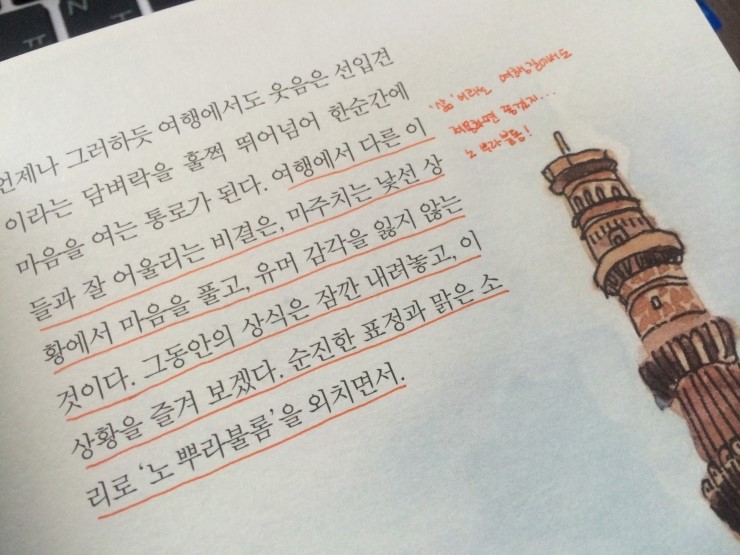 ㅠ
언제나 그러하듯 여행에서도 웃음은 선입견
이라는 담벼락을 훌쩍 뛰어넘어 한순간에
마음을 여는 통로가 된다. 여행에서 다른 이
들과 잘 어울리는 비결은, 마주치는 낯선 상
황에서 마음을 풀고, 유머 감각을 잃지 않는
것이다. 그동안의 상식은 잠깐 내려놓고, 이
상황을 즐겨 보겠다. 순진한 표정과 맑은 소
리로 '노 뿌라불롬'을 외치면서.
'삶'이라는 여행길에서도
즐겁지...
노 뿌라불롬!